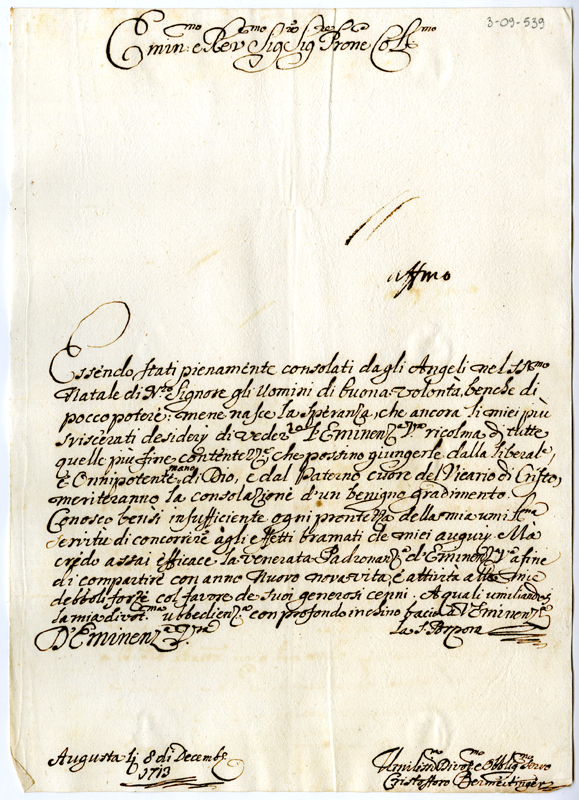 3-09-539
Emin: e Rev:mo Sig:re Sig:re Prone Col:mo
affmo
Essendo stati pienamente consolati dagli Angeli nel SS:mo
Natale di N:ro Signore gli Uomini di buona volontà, benche di
pocco potere: mene nasce la Speranza, che ancora li miei più
sviscerati desiderij di veder l'Eminenza V:ra ricolma di tutte
quelle più fine contentezze, che possino giungerle dalla liberale,
è Onnipotente mano di Dio, e dal Paterno cuore del Vicario di Cristo,
meriteranno la consolazione d'un benigno gradimento.
Conosco bensi insufficiente ogni prontezza della mia umil:ma
servitu di concorrere àgli effetti bramati de miei augurij. Mà
credo assai efficace la venerata Padronanza d'Eminenza V:ra afine
di compartire con anno Nuovo nova vita, è attivita alle mie
debboli forze col favore de Suoi generosi cenni. A quali umiliando
la mia divot:ma ubbedienza con profondo inchino bacio a l'Eminenza
D'Eminenza V:ra la S. Porpora
Augusta li 8 di Decembr
1713
Umiliss:mo Divot:mo e Obblig:mo Servo
Cristofforo Bermeitinger